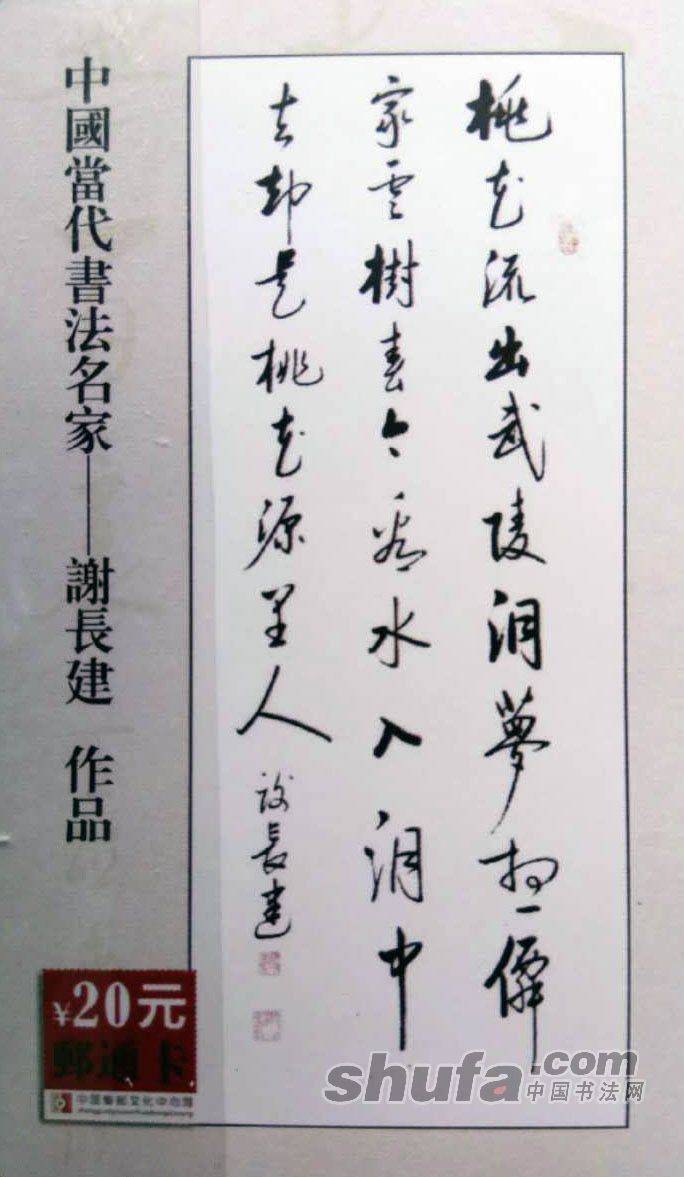 桃花流出武陵洞夢想僊
家雲樹春今看水入洞中
去却是桃花源里人
謝長建
中國當代書法名家——謝長建 作品
¥20元
郵通卡
shufa.com
中国书法网